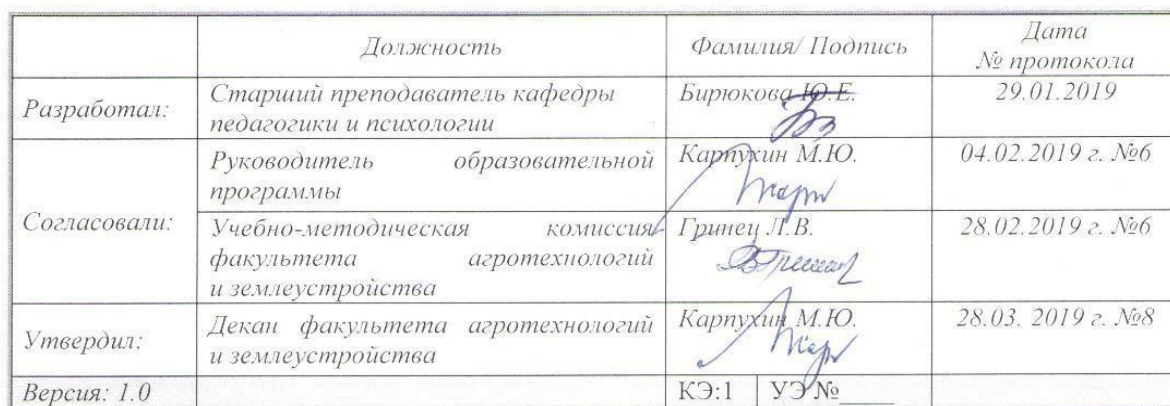 Должность
Фамилия/ Подпись
Дата
№ протокола
Разработал:
Старший преподаватель кафедры
педагогики и психологии
Бирюкова Ю.Е.
29.01.2019
Согласовали:
Руководитель образовательной
программы
Карпухин М.Ю.
04.02.2019 г. №6
Учебно-методическая комиссия
факультета агротехнологий
и землеустройства
Гринец Л.В.
28.02.2019 г. №6
Утвердил:
Декан факультета агротехнологий
и землеустройства
Карпухин М.Ю.
28.03. 2019 г. №8
Версия: 1.0
КЭ:1
УЭ №____